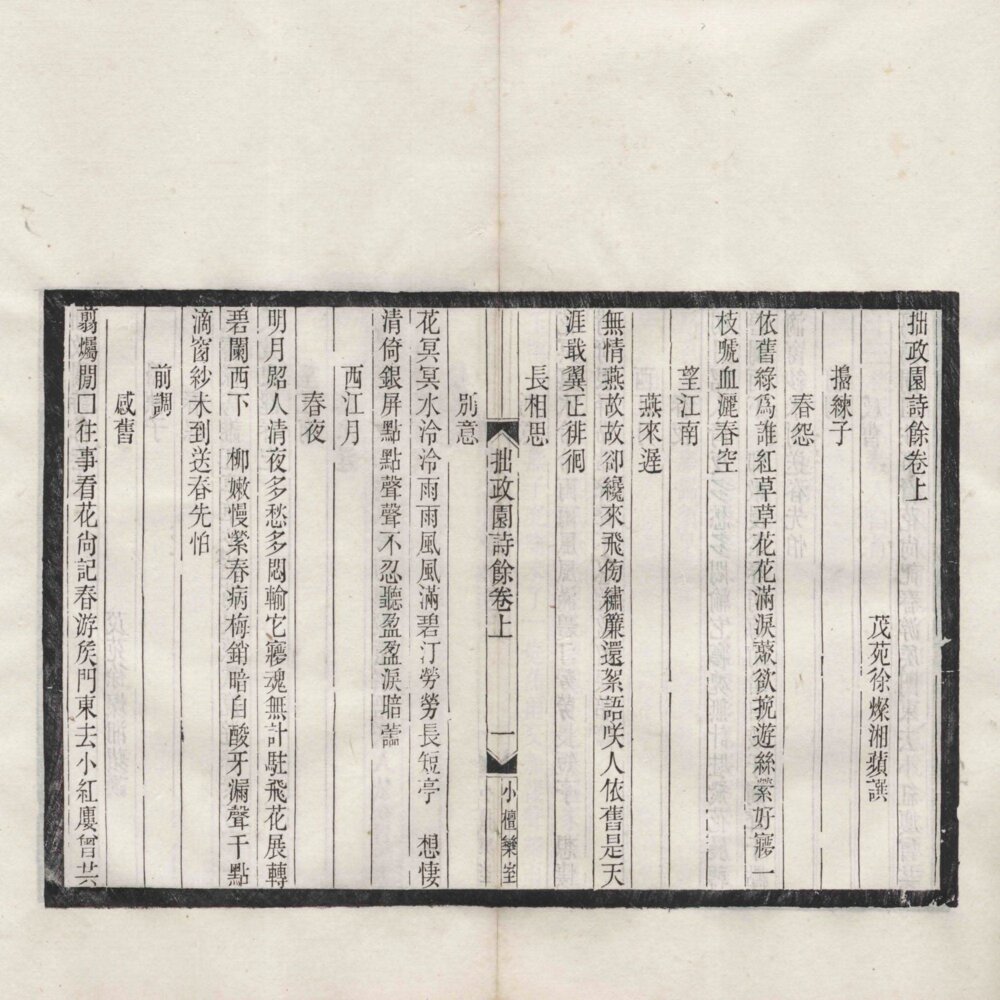 拙政園詩餘卷上
茂苑徐燦湘蘋譔
搗練子
春怨
依舊綠爲誰紅草草花花滿淚叢欲挽遊絲縈好㝱一
枝號血灑春空
望江南
燕來遲
無情燕故故卻纔來飛傍繡簾還絮語咲人依舊是天
涯戢翼正徘徊
長相思
別意
花冥冥水泠泠雨雨風風滿碧汀勞勞長短亭　想悽
清倚銀屏點點聲聲不忍聽盈盈淚暗蘦
西江月
春夜
明月照人清夜多愁多悶輸它㝱魂無計駐飛花展轉
碧闌西下　柳嫩慢縈春病梅銷暗自酸牙漏聲千點
滴窗紗未到送春先怕
前調
感舊
翦燭閒□往事看花尚記春游矦門東去小紅廔曾共
拙政園詩餘卷上
一
小檀欒室